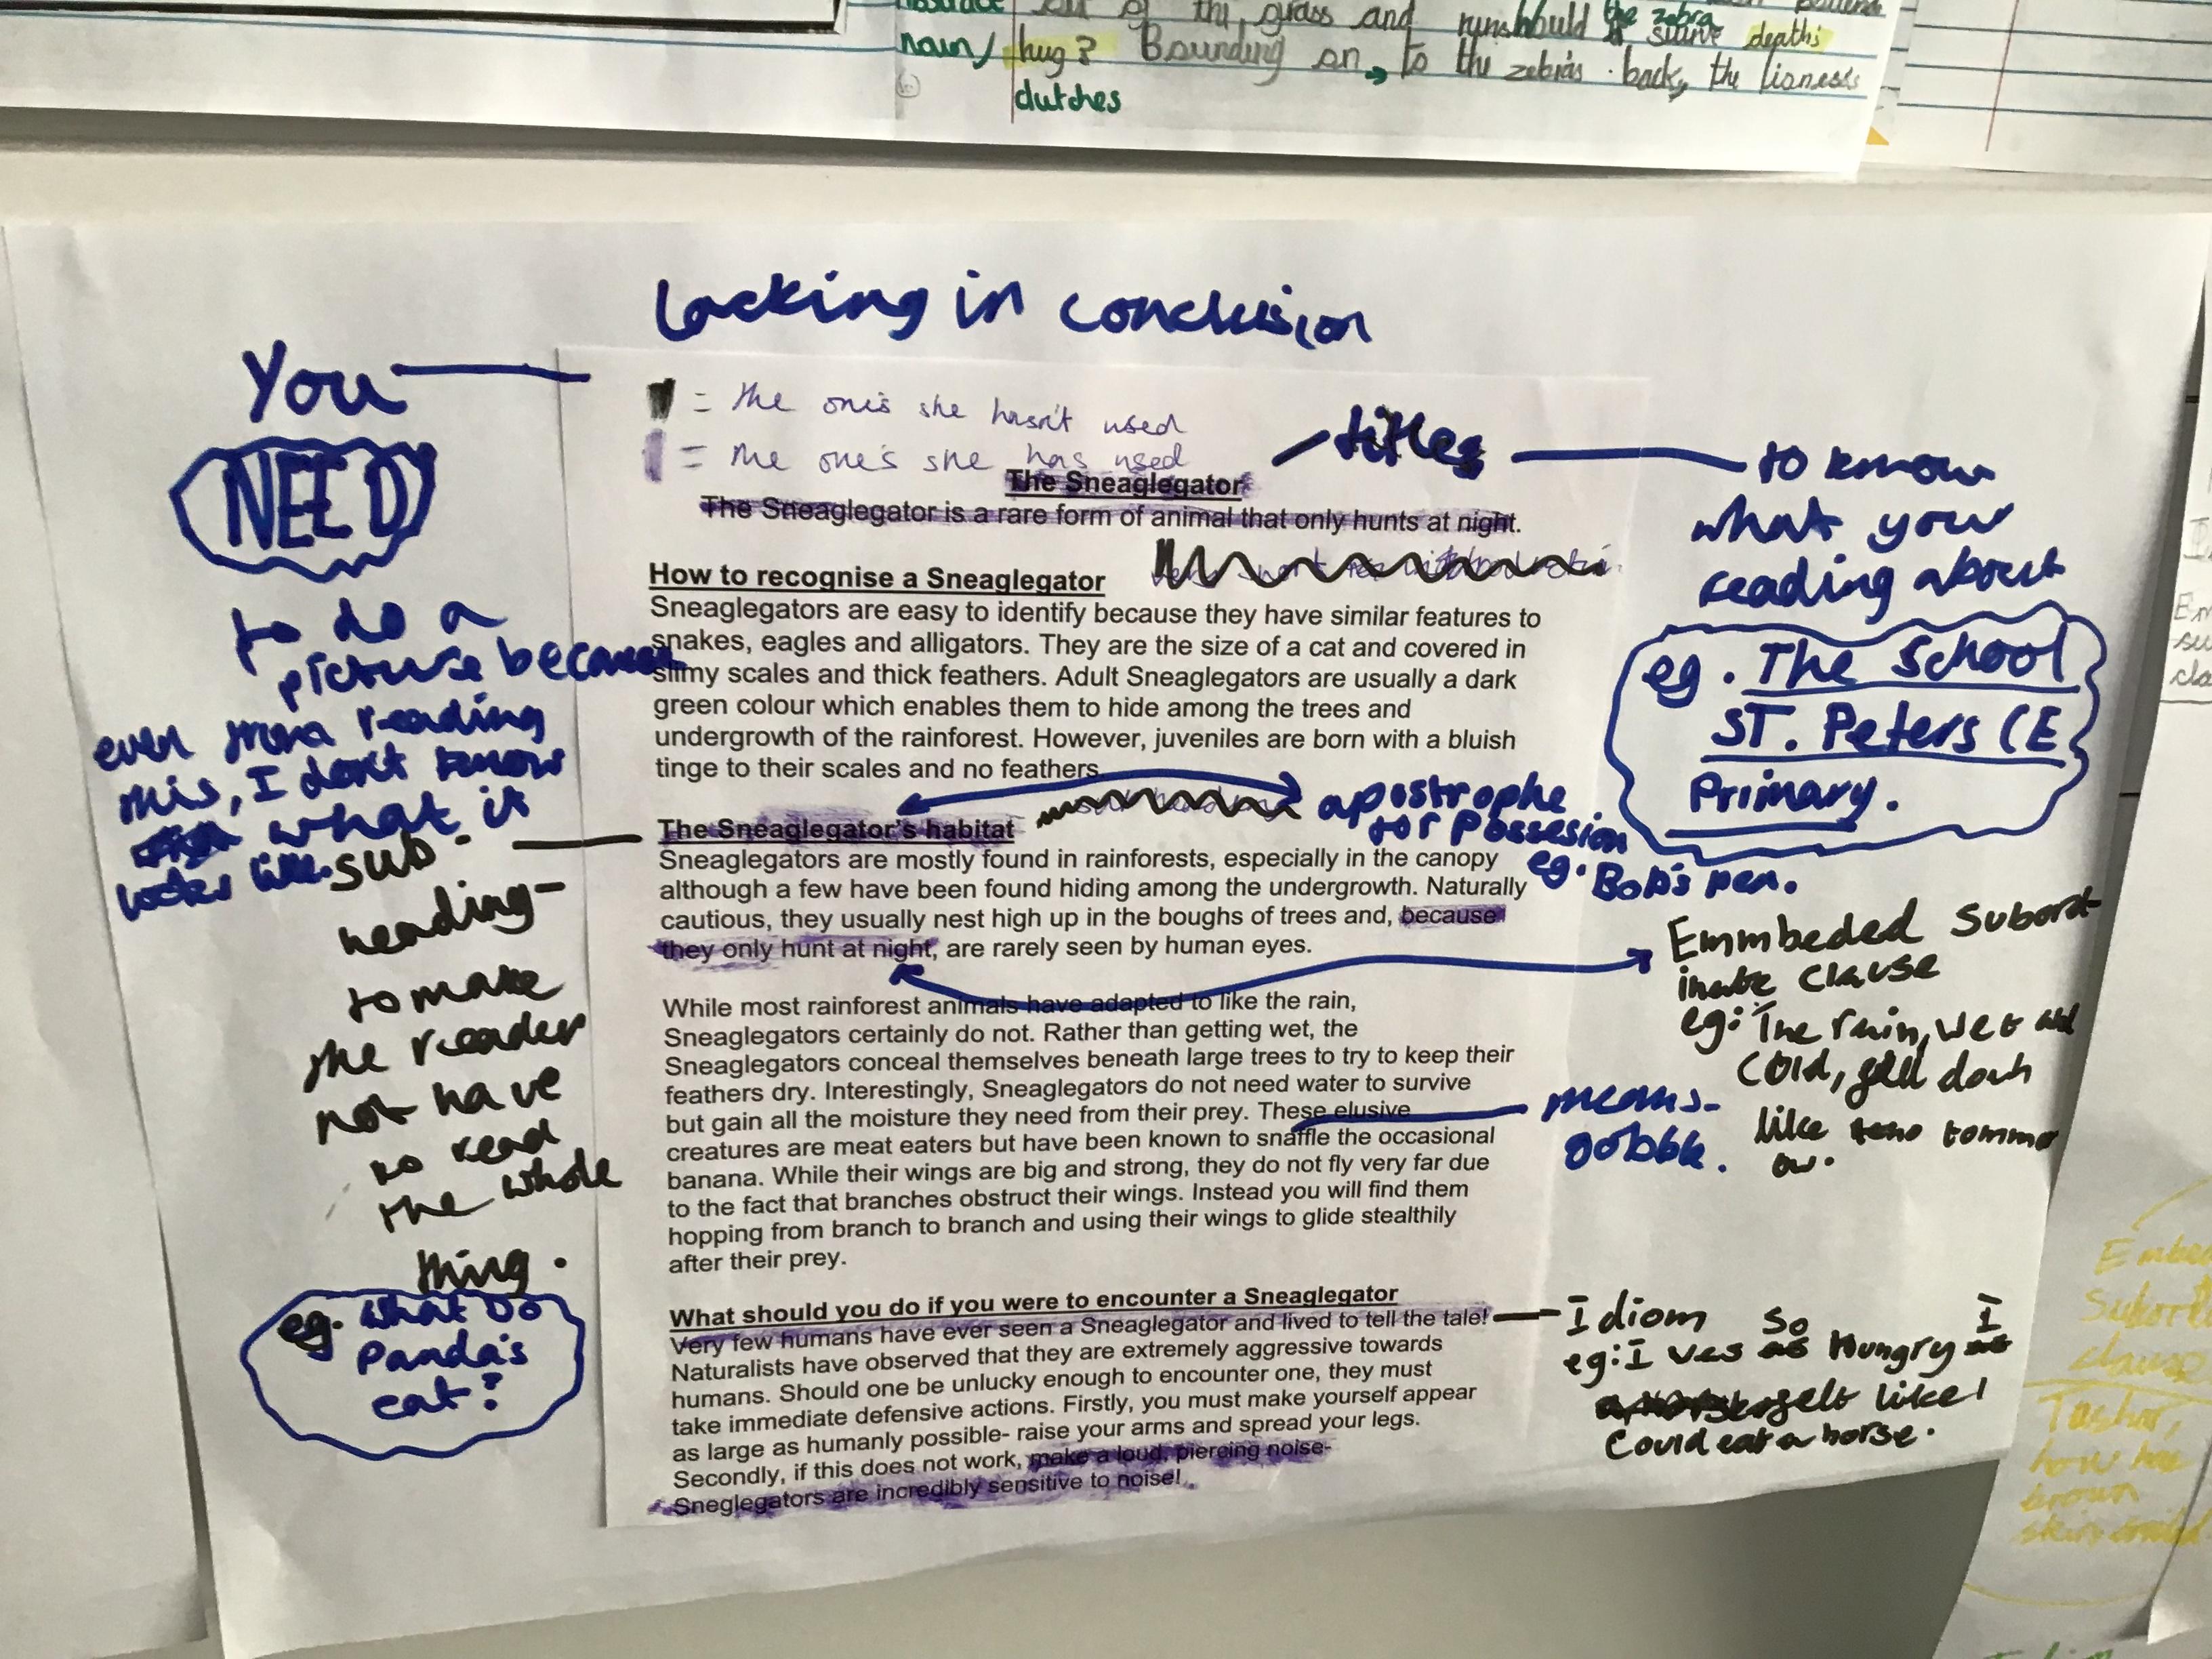 out of the grass and
noun/ hug? Bounding on to the zebras back, the lioness
should the zebra
deaths
clutches
Lacking in conclusion
You
NEED
to do a
picture because
even from reading
this, I don't know
what it
looks like.
= the one's she hasn't used
= the one's she has used
titles
to know
what your
reading about
eg. The School
ST. Peters CE
Primary.
The Sneaglegator
The Sneaglegator is a rare form of animal that only hunts at night.
How to recognise a Sneaglegator
Sneaglegators are easy to identify because they have similar features to
snakes, eagles and alligators. They are the size of a cat and covered in
slimy scales and thick feathers. Adult Sneaglegators are usually a dark
green colour which enables them to hide among the trees and
undergrowth of the rainforest. However, juveniles are born with a bluish
tinge to their scales and no feathers.
apostrophe
for Possesion
eg. Bob's pen.
sub-
heading-
to make
the reader
not have
to read
the whole
thing.
eg. What Do
Panda's
eat?
The Sneaglegator's habitat
Sneaglegators are mostly found in rainforests, especially in the canopy
although a few have been found hiding among the undergrowth. Naturally
cautious, they usually nest high up in the boughs of trees and, because
they only hunt at night, are rarely seen by human eyes.
Emmbeded Subord-
inate Clause
eg: The rain, wet and
cold, fell down
like
While most rainforest animals have adapted to like the rain,
Sneaglegators certainly do not. Rather than getting wet, the
Sneaglegators conceal themselves beneath large trees to try to keep their
feathers dry. Interestingly, Sneaglegators do not need water to survive
but gain all the moisture they need from their prey. These elusive
creatures are meat eaters but have been known to snaffle the occasional
banana. While their wings are big and strong, they do not fly very far due
to the fact that branches obstruct their wings. Instead you will find them
hopping from branch to branch and using their wings to glide stealthily
after their prey.
means-
gobble.
What should you do if you were to encounter a Sneaglegator
Very few humans have ever seen a Sneaglegator and lived to tell the tale!
Naturalists have observed that they are extremely aggressive towards
humans. Should one be unlucky enough to encounter one, they must
take immediate defensive actions. Firstly, you must make yourself appear
as large as humanly possible- raise your arms and spread your legs.
Secondly, if this does not work, make a loud, piercing noise-
Sneglegators are incredibly sensitive to noise!
Idiom
eg: I was so Hungry I
felt like I
Could eat a horse.
clause